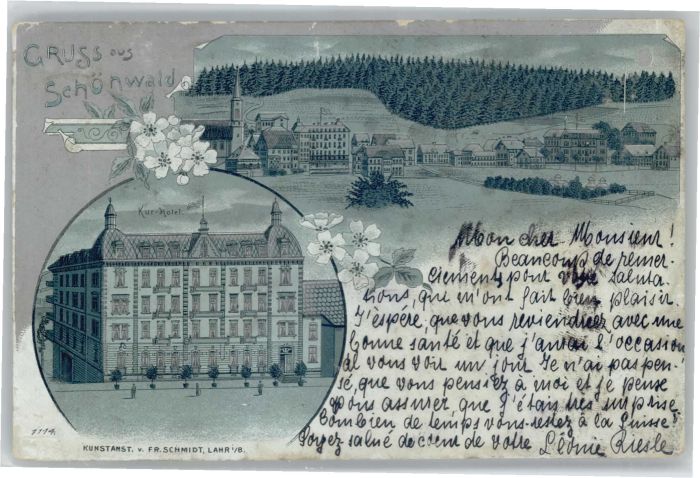 GRUSS aus
Schönwald
Kur-Hotel.
Mon cher Monsieur!
Beaucoup de remer-
ciements pour vos saluta-
tions, que m'ont fait bien plaisir.
J'espère, que vous reviendriez avec une
bonne santé et que j'aurai l'occasion
de vous voir un jour. Je n'ai pas pen-
sé, que vous pensiez à moi et je peuse
vous assurer, que j'étais très surprise.
Combien de temps vous restez à la Suisse?
Soyez salué de coeur de votre Léonie Riesle
1114.
KUNSTANST. v. FR. SCHMIDT, LAHR i/B.